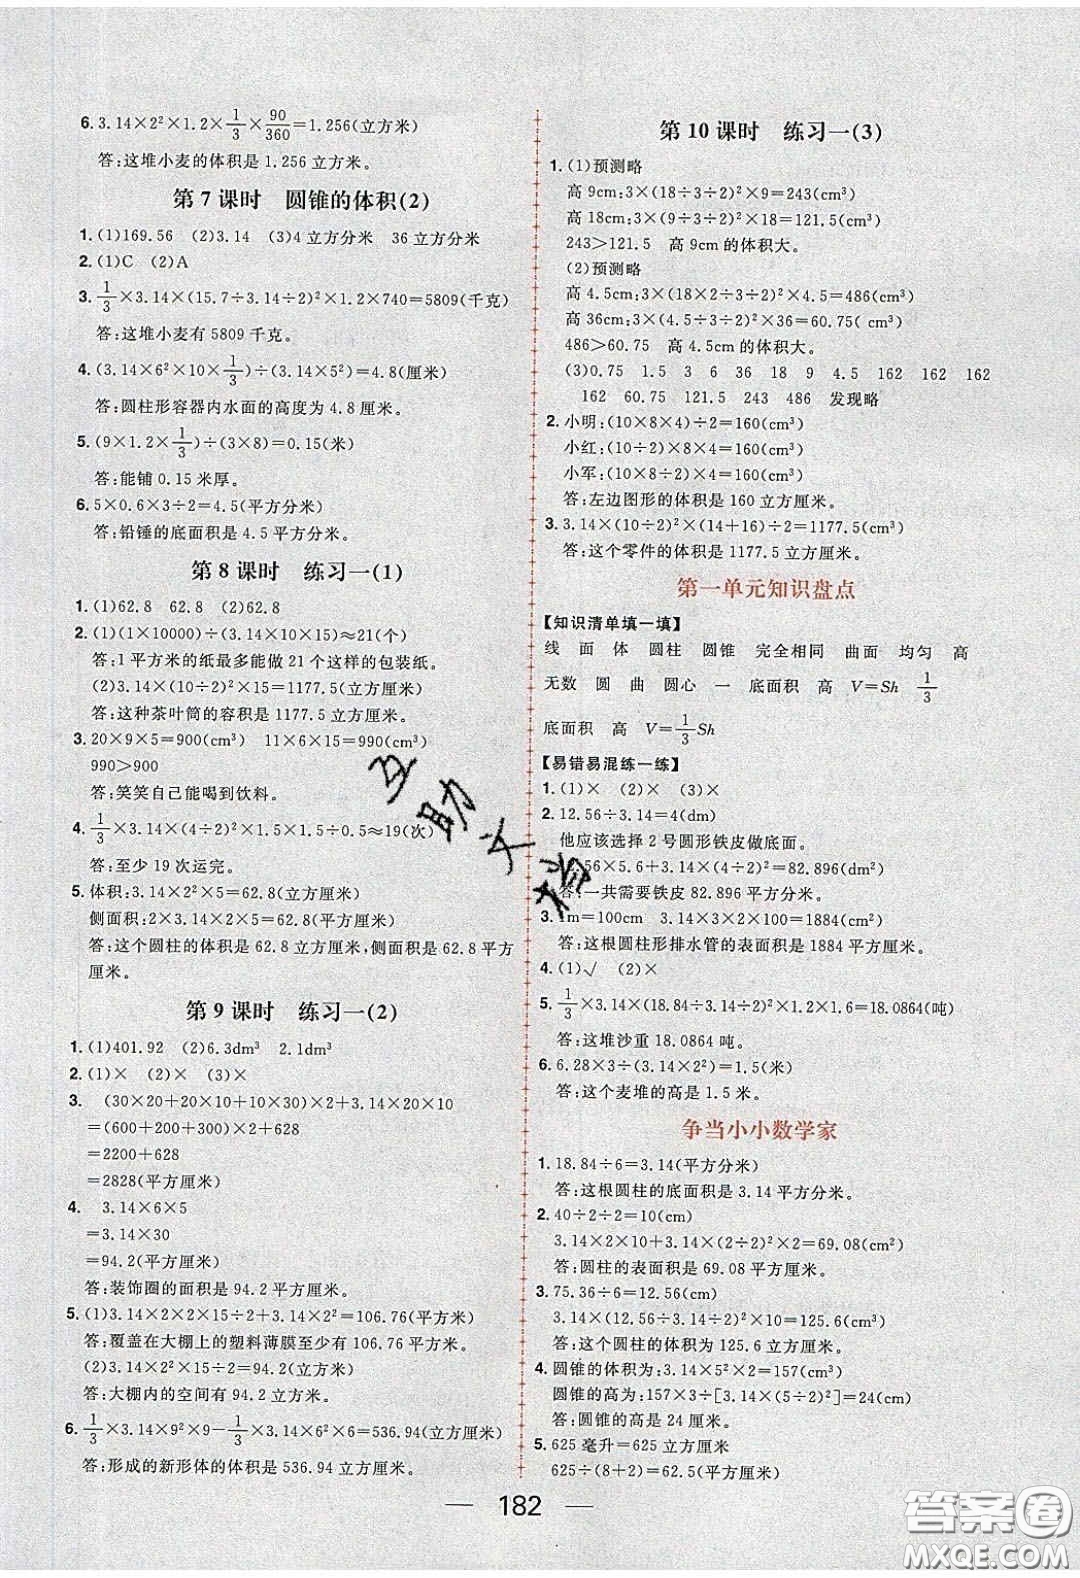 6. 3.14×2²×1.2×1/3×90/360=1.256(立方米)
答:这堆小麦的体积是 1.256 立方米。
第 7 课时 圆锥的体积(2)
1. (1)169.56 (2)3.14 (3)4 立方分米 36 立方分米
2. (1)C (2)A
3. 1/3×3.14×(15.7÷3.14÷2)²×1.2×740=5809(千克)
答:这堆小麦有 5809 千克。
4. (3.14×6²×10×1/3)÷(3.14×5²)=4.8(厘米)
答:圆柱形容器内水面的高度为 4.8 厘米。
5. (9×1.2×1/3)÷(3×8)=0.15(米)
答:能铺 0.15 米厚。
6. 5×0.6×3÷2=4.5(平方分米)
答:铅锤的底面积是 4.5 平方分米。
第 8 课时 练习一(1)
1. (1)62.8 62.8 (2)62.8
2. (1)(1×10000)÷(3.14×10×15)≈21(个)
答:1 平方米的纸最多能做 21 个这样的包装纸。
(2)3.14×(10÷2)²×15=1177.5(立方厘米)
答:这种茶叶筒的容积是 1177.5 立方厘米。
3. 20×9×5=900(cm³) 11×6×15=990(cm³)
990>900
答:笑笑自己能喝到饮料。
4. 1/3×3.14×(4÷2)²×1.5×1.5÷0.5≈19(次)
答:至少 19 次运完。
5. 体积:3.14×2²×5=62.8(立方厘米)
侧面积:2×3.14×2×5=62.8(平方厘米)
答:这个圆柱的体积是 62.8 立方厘米,侧面积是 62.8 平方
厘米。
第 9 课时 练习一(2)
1. (1)401.92 (2)6.3dm³ 2.1dm³
2. (1)× (2)× (3)×
3. (30×20+20×10+30×10)×2+3.14×20×10
=(600+200+300)×2+628
=2200+628
=2828(平方厘米)
4. 3.14×6×5
=3.14×30
=94.2(平方厘米)
答:装饰圈的面积是 94.2 平方厘米。
5. (1)3.14×2×2×15÷2+3.14×2²=106.76(平方米)
答:覆盖在大棚上的塑料薄膜至少有 106.76 平方米。
(2)3.14×2²×15÷2=94.2(立方米)
答:大棚内的空间有 94.2 立方米。
6. 1/3×3.14×9²×9-1/3×3.14×6²×6=536.94(立方厘米)
答:形成的新形体的体积是 536.94 立方厘米。
第 10 课时 练习一(3)
1. (1)预测略
高 9cm:3×(18÷3÷2)²×9=243(cm³)
高 18cm:3×(9÷3÷2)²×18=121.5(cm³)
243>121.5 高 9cm 的体积大。
(2)预测略
高 4.5cm:3×(18×2÷3÷2)²×4.5=486(cm³)
高 36cm:3×(4.5÷3÷2)²×36=60.75(cm³)
486>60.75 高 4.5cm 的体积大。
(3)0.75 1.5 3 6 36 18 9 4.5 162 162 162
162 60.75 121.5 243 486 发现略
2. 小明:(10×8×4)÷2=160(cm³)
小红:(10÷2)×8×4=160(cm³)
小军:(10×8÷2)×4=160(cm³)
答:左边图形的体积是 160 立方厘米。
3. 3.14×(10÷2)²×(14+16)÷2=1177.5(cm³)
答:这个零件的体积是 1177.5 立方厘米。
第一单元知识盘点
【知识清单填一填】
线 面 体 圆柱 圆锥 完全相同 曲面 均匀 高
无数 圆 曲 圆心 一 底面积 高 V=Sh 1/3
底面积 高 V=1/3Sh
【易错易混练一练】
1. (1)× (2)× (3)×
2. 12.56÷3.14=4(dm)
他应该选择 2 号圆形铁皮做底面。
12.56×5.6+3.14×(4÷2)²=82.896(dm²)
答:一共需要铁皮 82.896 平方分米。
3. 1m=100cm 3.14×3×2×100=1884(cm²)
答:这根圆柱形排水管的表面积是 1884 平方厘米。
4. (1)√ (2)×
5. 1/3×3.14×(18.84÷3.14÷2)²×1.2×1.6=18.0864(吨)
答:这堆沙重 18.0864 吨。
6. 6.28×3÷(3.14×2²)=1.5(米)
答:这个麦堆的高是 1.5 米。
争当小小数学家
1. 18.84÷6=3.14(平方分米)
答:这根圆柱的底面积是 3.14 平方分米。
2. 40÷2÷2=10(cm)
3.14×2×10+3.14×(2÷2)²×2=69.08(cm²)
答:圆柱的表面积是 69.08 平方厘米。
3. 75.36÷6=12.56(cm)
3.14×(12.56÷3.14÷2)²×10=125.6(cm³)
答:这个圆柱的体积为 125.6 立方厘米。
4. 圆锥的体积为:3.14×5²×2=157(cm³)
圆锥的高为:157×3÷[3.14×(5÷2)²]=24(cm)
答:圆锥的高是 24 厘米。
5. 625 毫升=625 立方厘米
625÷(8+2)=62.5(平方厘米)
182
互助文档
答案圈
MXQE.COM